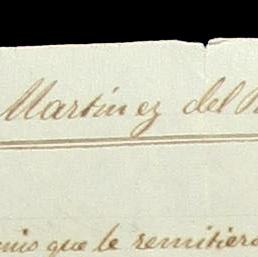 Martinez del
que le remitiera